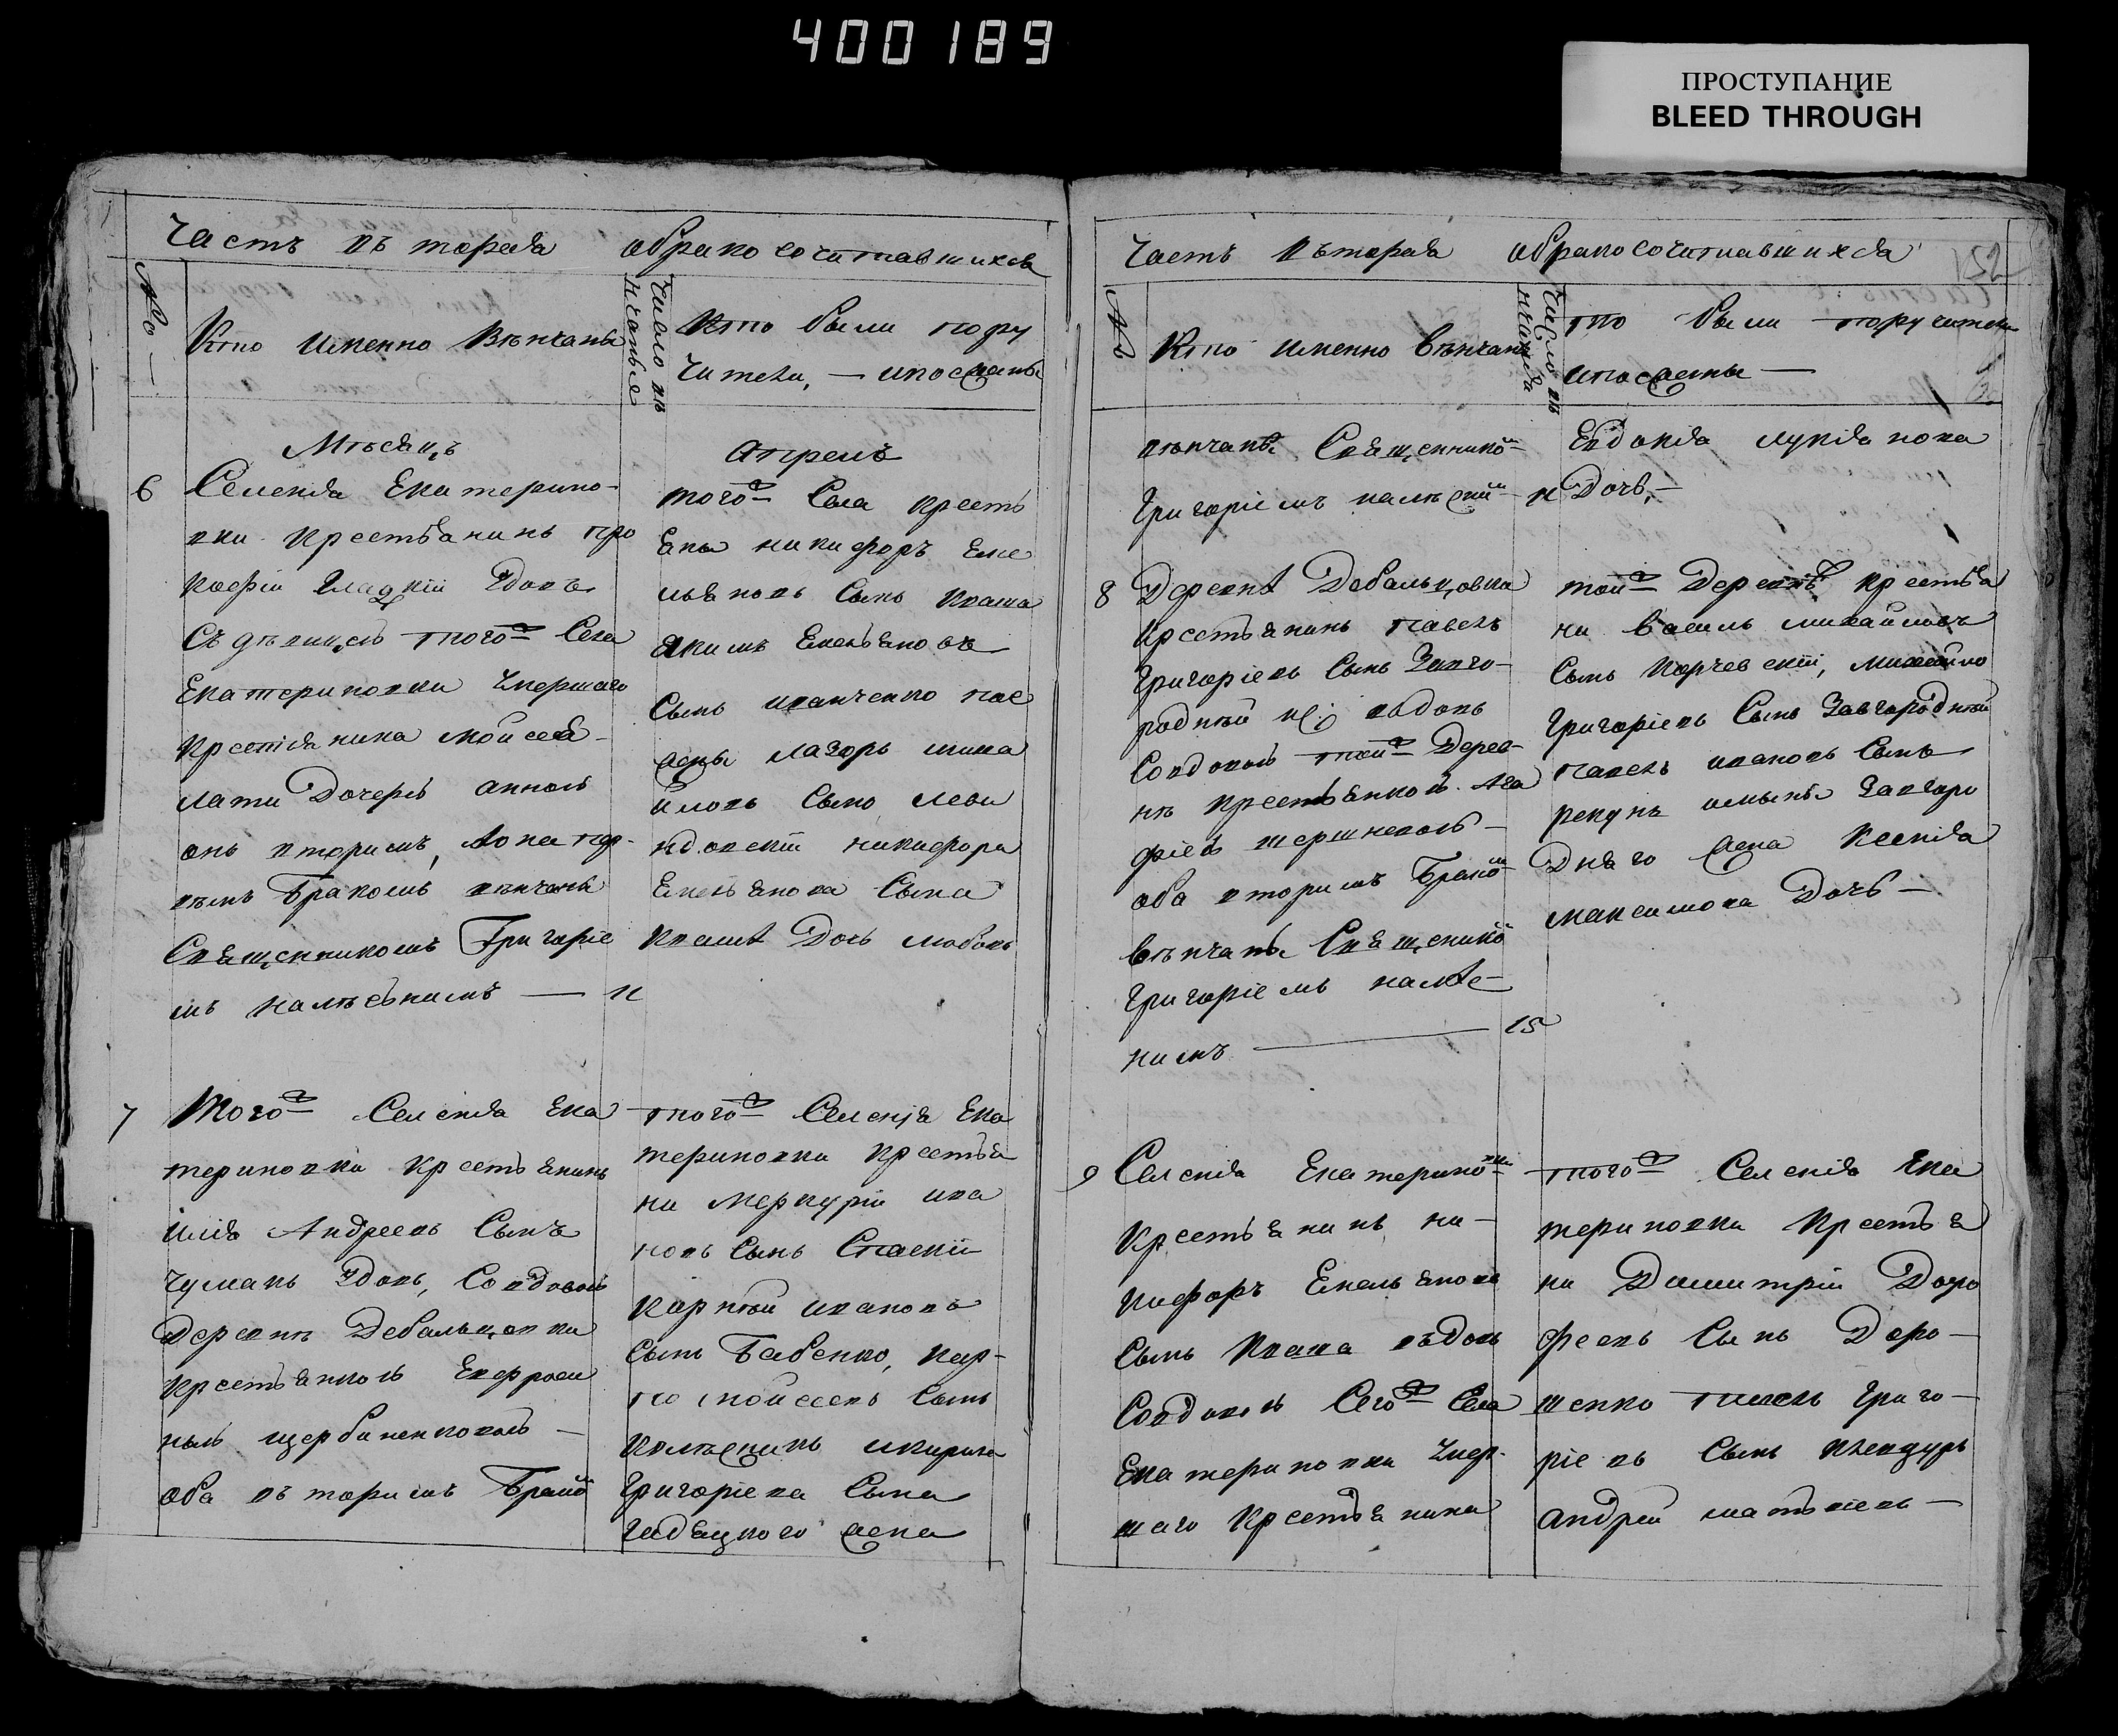 400189
ПРОСТУПАНИЕ
BLEED THROUGH
Часть въ торая обрако сочитавшихся
№
Кто именно Венчаны
Число вѣ
нчанья
Кто были пору
чители, — ипосаены
Мѣсяцъ
Апрель
6
Селенія Екатерино-
вки крестьянинъ про
кофій Гладкій вдовъ
съ дѣвицею того Села
Екатериновки умершаго
крестіянина Мойсея
дочерю анною
онъ вторимъ, Аона пер-
вымъ Бракомъ венчаны
Священникомъ Григоріе
мъ
11
того Села кресть
яны никифоръ Еме
льяновъ Сынъ Кваша
якимъ Емельяновъ
Сынъ иванченко
лазорь миха
йловъ Сынъ
никифора
Емельянова Сына
Кваши Дочь любовь
7
Того Селенія Ека
териновки крестьянинъ
илія Андреевъ Сынъ
Чуманъ вдовъ, Совдовою
Деревнѣ Дебальцовки
Крестьянкою Евфроси
ньею щербиненковою
оба въ торимъ Брако
того Селенія Ека
териновки Кресть я
ни Меркурій ива
новъ Сынъ Спаскій
ивановъ
Сынъ Бабенко, кар-
по мойсеевъ Сынъ
икирила
Григоріева Сына
Гадяцкого
Часть въторая обрако сочитавшихся
№
Кто именно венчаны
Число вѣ
нчанія
кто были поручители
ипосаены —
венчаны Священнико
Григоріемъ
11
Евдокія лукіянова
Дочь, —
8
Деревнѣ Дебальцовка
крестьянинъ павелъ
Григоріевъ Сынъ Завго-
родній вдовъ
Совдовою той Дерев-
нѣ крестьянкою Ага
фіею
оба вторимъ Брако
венчаны Священнико
Григоріемъ
нимъ — 15
той Деревнѣ крестья
ни василь михайловъ
Сынъ Корчевскій, михайло
Григоріевъ Сынъ Завгородній
павелъ ивановъ Сынъ
Завгоро
дняго Ксенія
максимова Дочь —
9
Селенія Екатерино
Крестьянинъ ни-
кифоръ Емельянов
Сынъ Кваша въдовъ
Совдовою Сего Села
Екатериновки умер-
шаго крестьянина
того Селенія Ека
териновки Крестья
ни Димитрій Доро
феевъ Сынъ Доро-
шенко Григо-
ріевъ Сынъ
андрей матвіевъ —